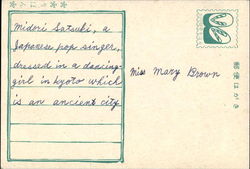 Midori Satsuki, a
Japanese pop singer,
dressed in a dancing-
girl in kyoto which
is an ancient city
Miss Mary Brown
郵便はがき